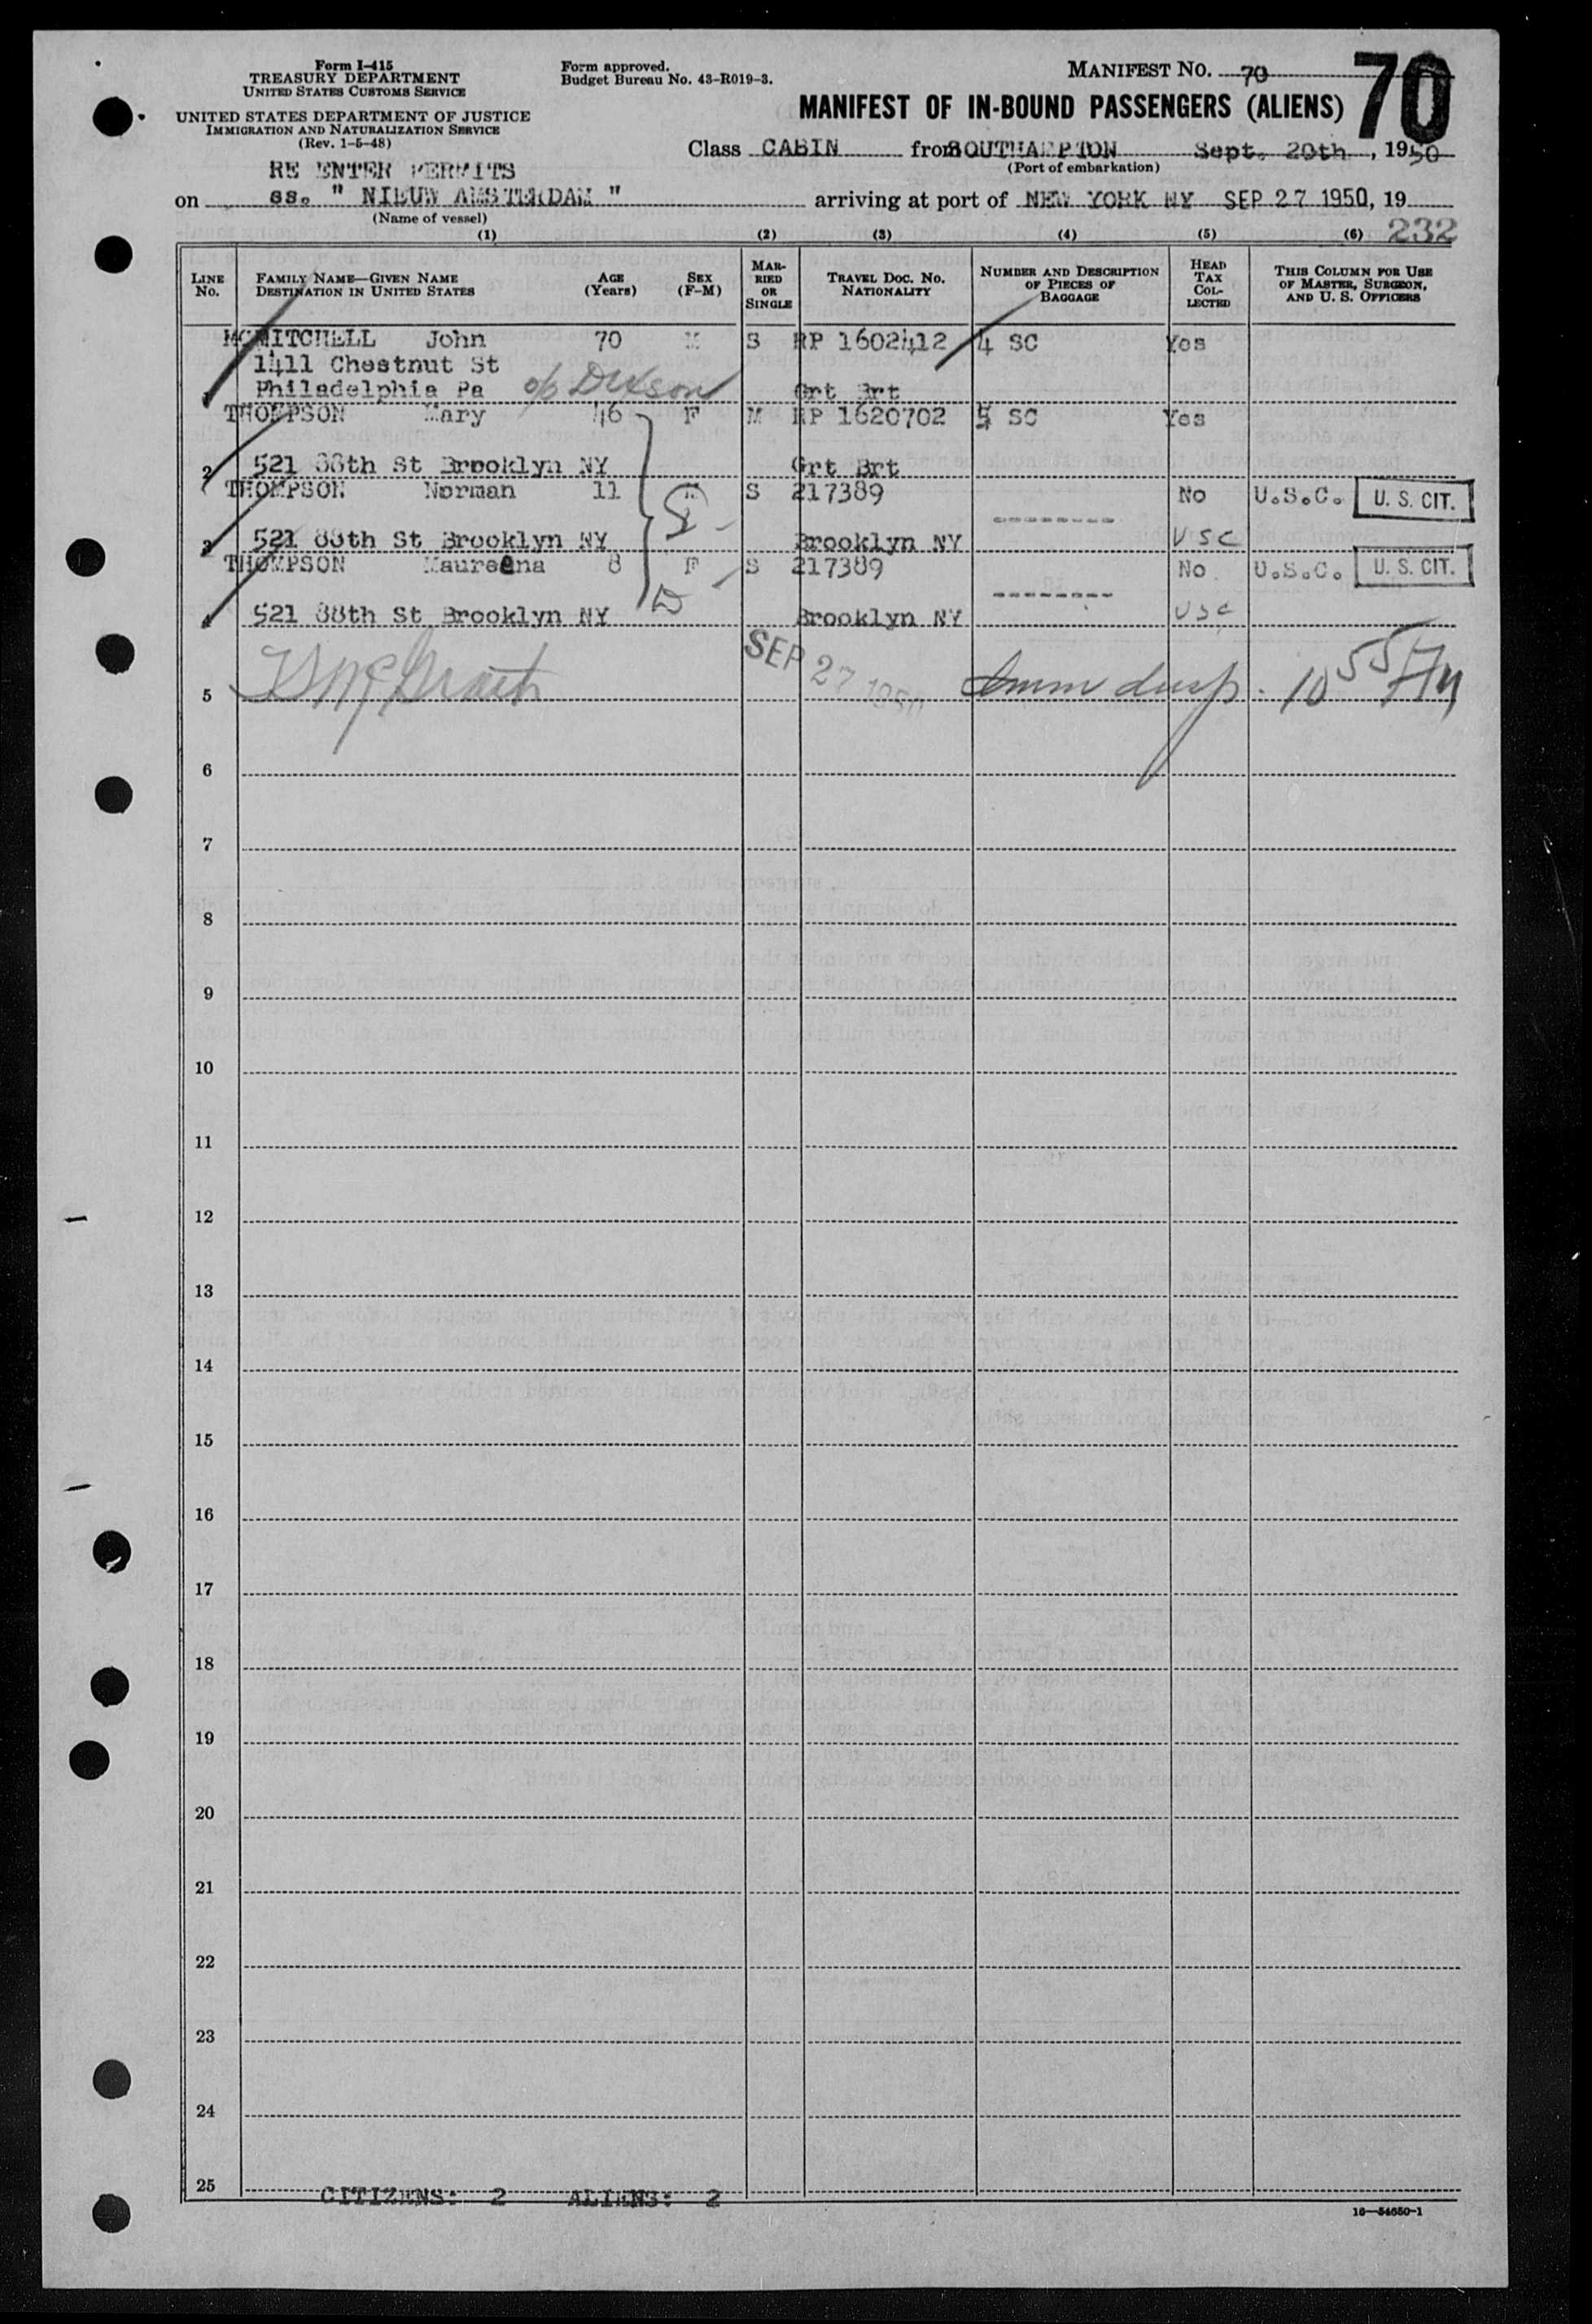 Form I-415
TREASURY DEPARTMENT
UNITED STATES CUSTOMS SERVICE
UNITED STATES DEPARTMENT OF JUSTICE
IMMIGRATION AND NATURALIZATION SERVICE
(Rev. 1-5-48)
Form approved.
Budget Bureau No. 43-R019-3.
MANIFEST NO. 70
70
MANIFEST OF IN-BOUND PASSENGERS (ALIENS)
Class CABIN from SOUTHAMPTON Sept. 20th, 1950
(Port of embarkation)
RE ENTER PERMITS
on ss. " NIEUW AMSTERDAM " arriving at port of NEW YORK NY SEP 27 1950, 19
(Name of vessel)
232
(1) (2) (3) (4) (5) (6)
LINE No. FAMILY NAME—GIVEN NAME DESTINATION IN UNITED STATES AGE (Years) SEX (F-M) MARRIED OR SINGLE TRAVEL DOC. NO. NATIONALITY NUMBER AND DESCRIPTION OF PIECES OF BAGGAGE HEAD TAX COLLECTED THIS COLUMN FOR USE OF MASTER, SURGEON, AND U. S. OFFICERS
MCMITCHELL John 70 M S RP 1602412 4 SC Yes
1411 Chestnut St
Philadelphia Pa c/o Dixson Grt Brt
THOMPSON Mary 46 F M RP 1620702 5 SC Yes
2 521 88th St Brooklyn NY Grt Brt
THOMPSON Norman 11 M S 217389 -------- No U.S.C. U. S. CIT.
3 521 88th St Brooklyn NY Brooklyn NY USC
THOMPSON Maureena 8 F S 217389 -------- No U.S.C. U. S. CIT.
4 521 88th St Brooklyn NY Brooklyn NY USC
SEP 27 1950
5 Imm insp. 10 55 AM
6
7
8
9
10
11
12
13
14
15
16
17
18
19
20
21
22
23
24
25
CITIZENS: 2 ALIENS: 2
16—54650-1